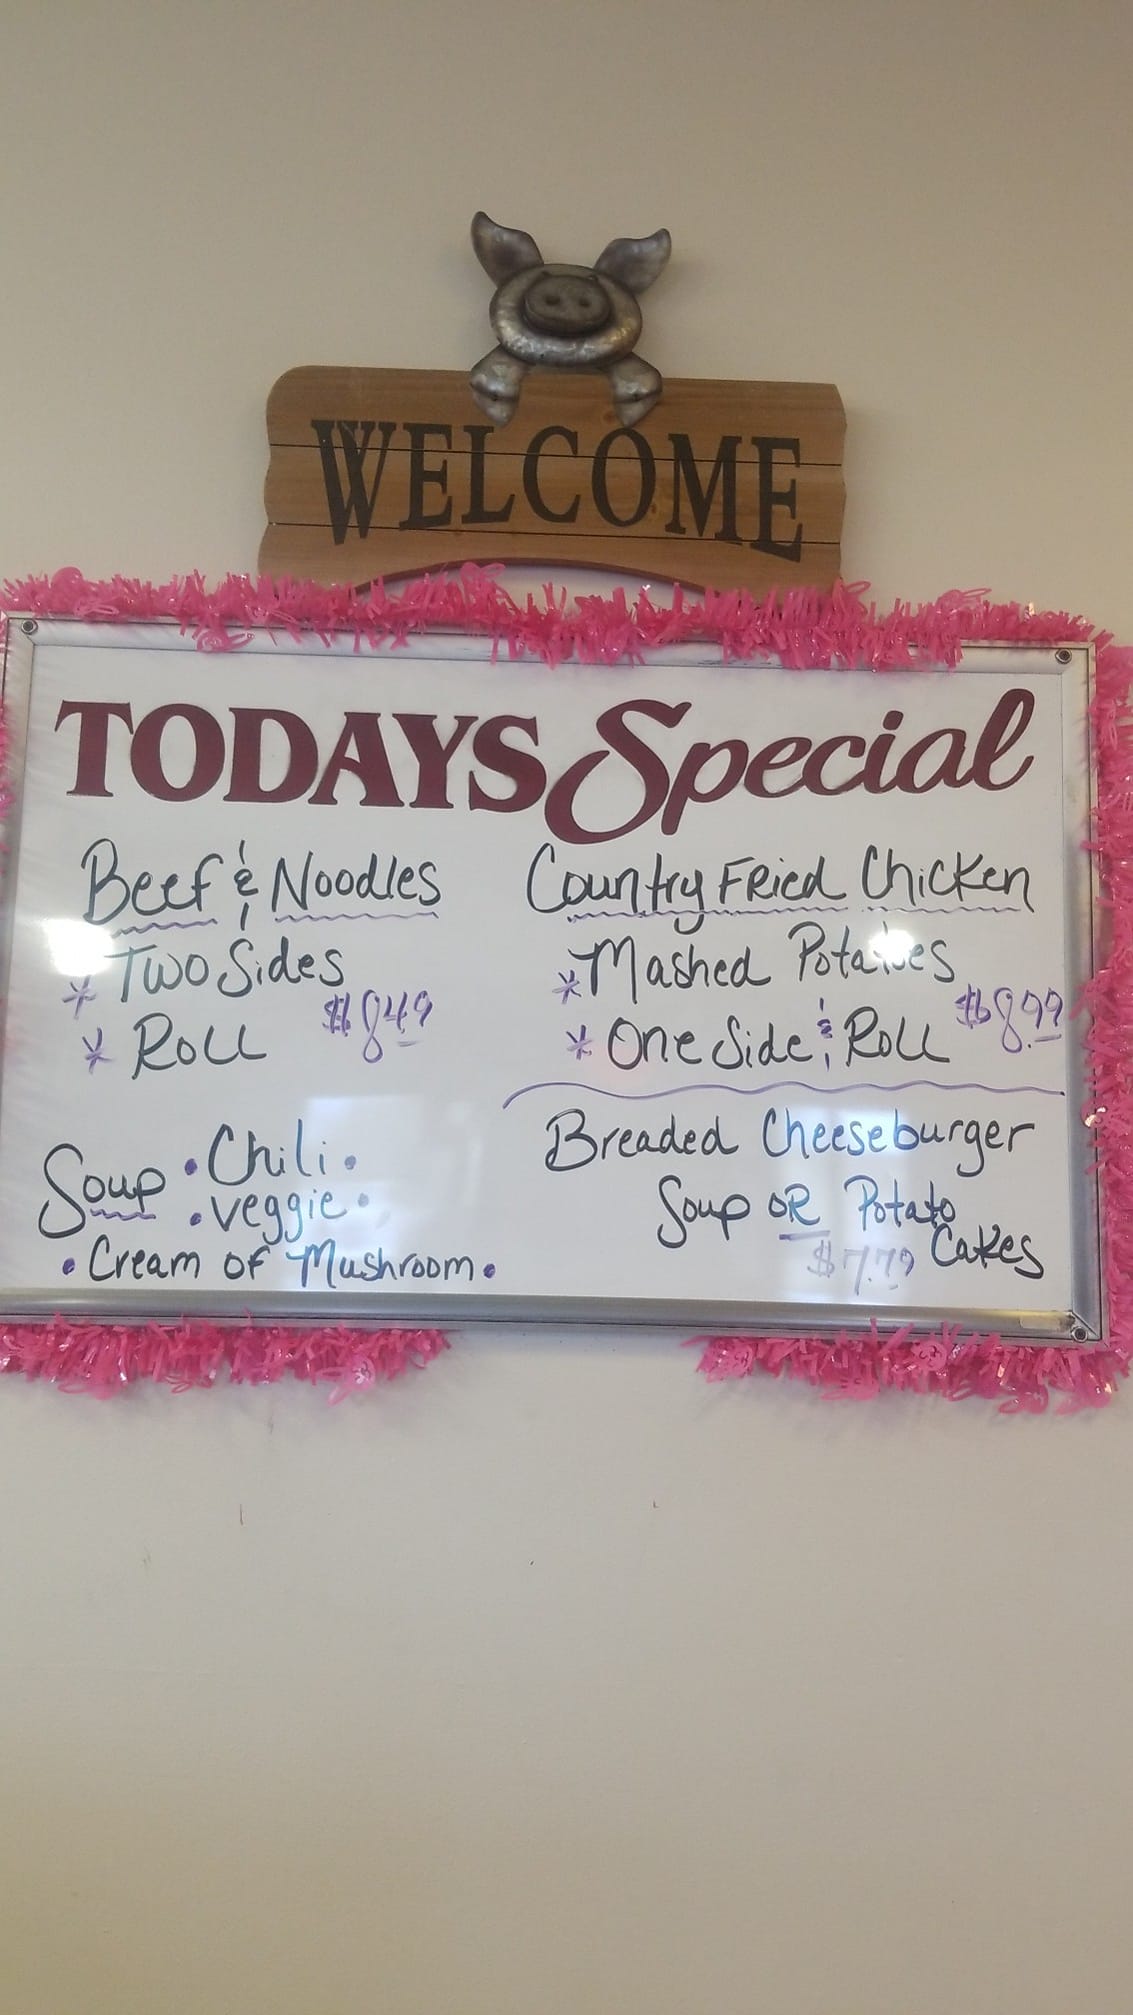 WELCOME
TODAYS Special
Beef & Noodles
* Two Sides
* Roll $8.49
Soup • Chili •
• veggie •
• Cream of Mushroom •
Country Fried Chicken
* Mashed Potatoes
* One Side & Roll $8.99
Breaded Cheeseburger
Soup OR Potato
Cakes
$7.79